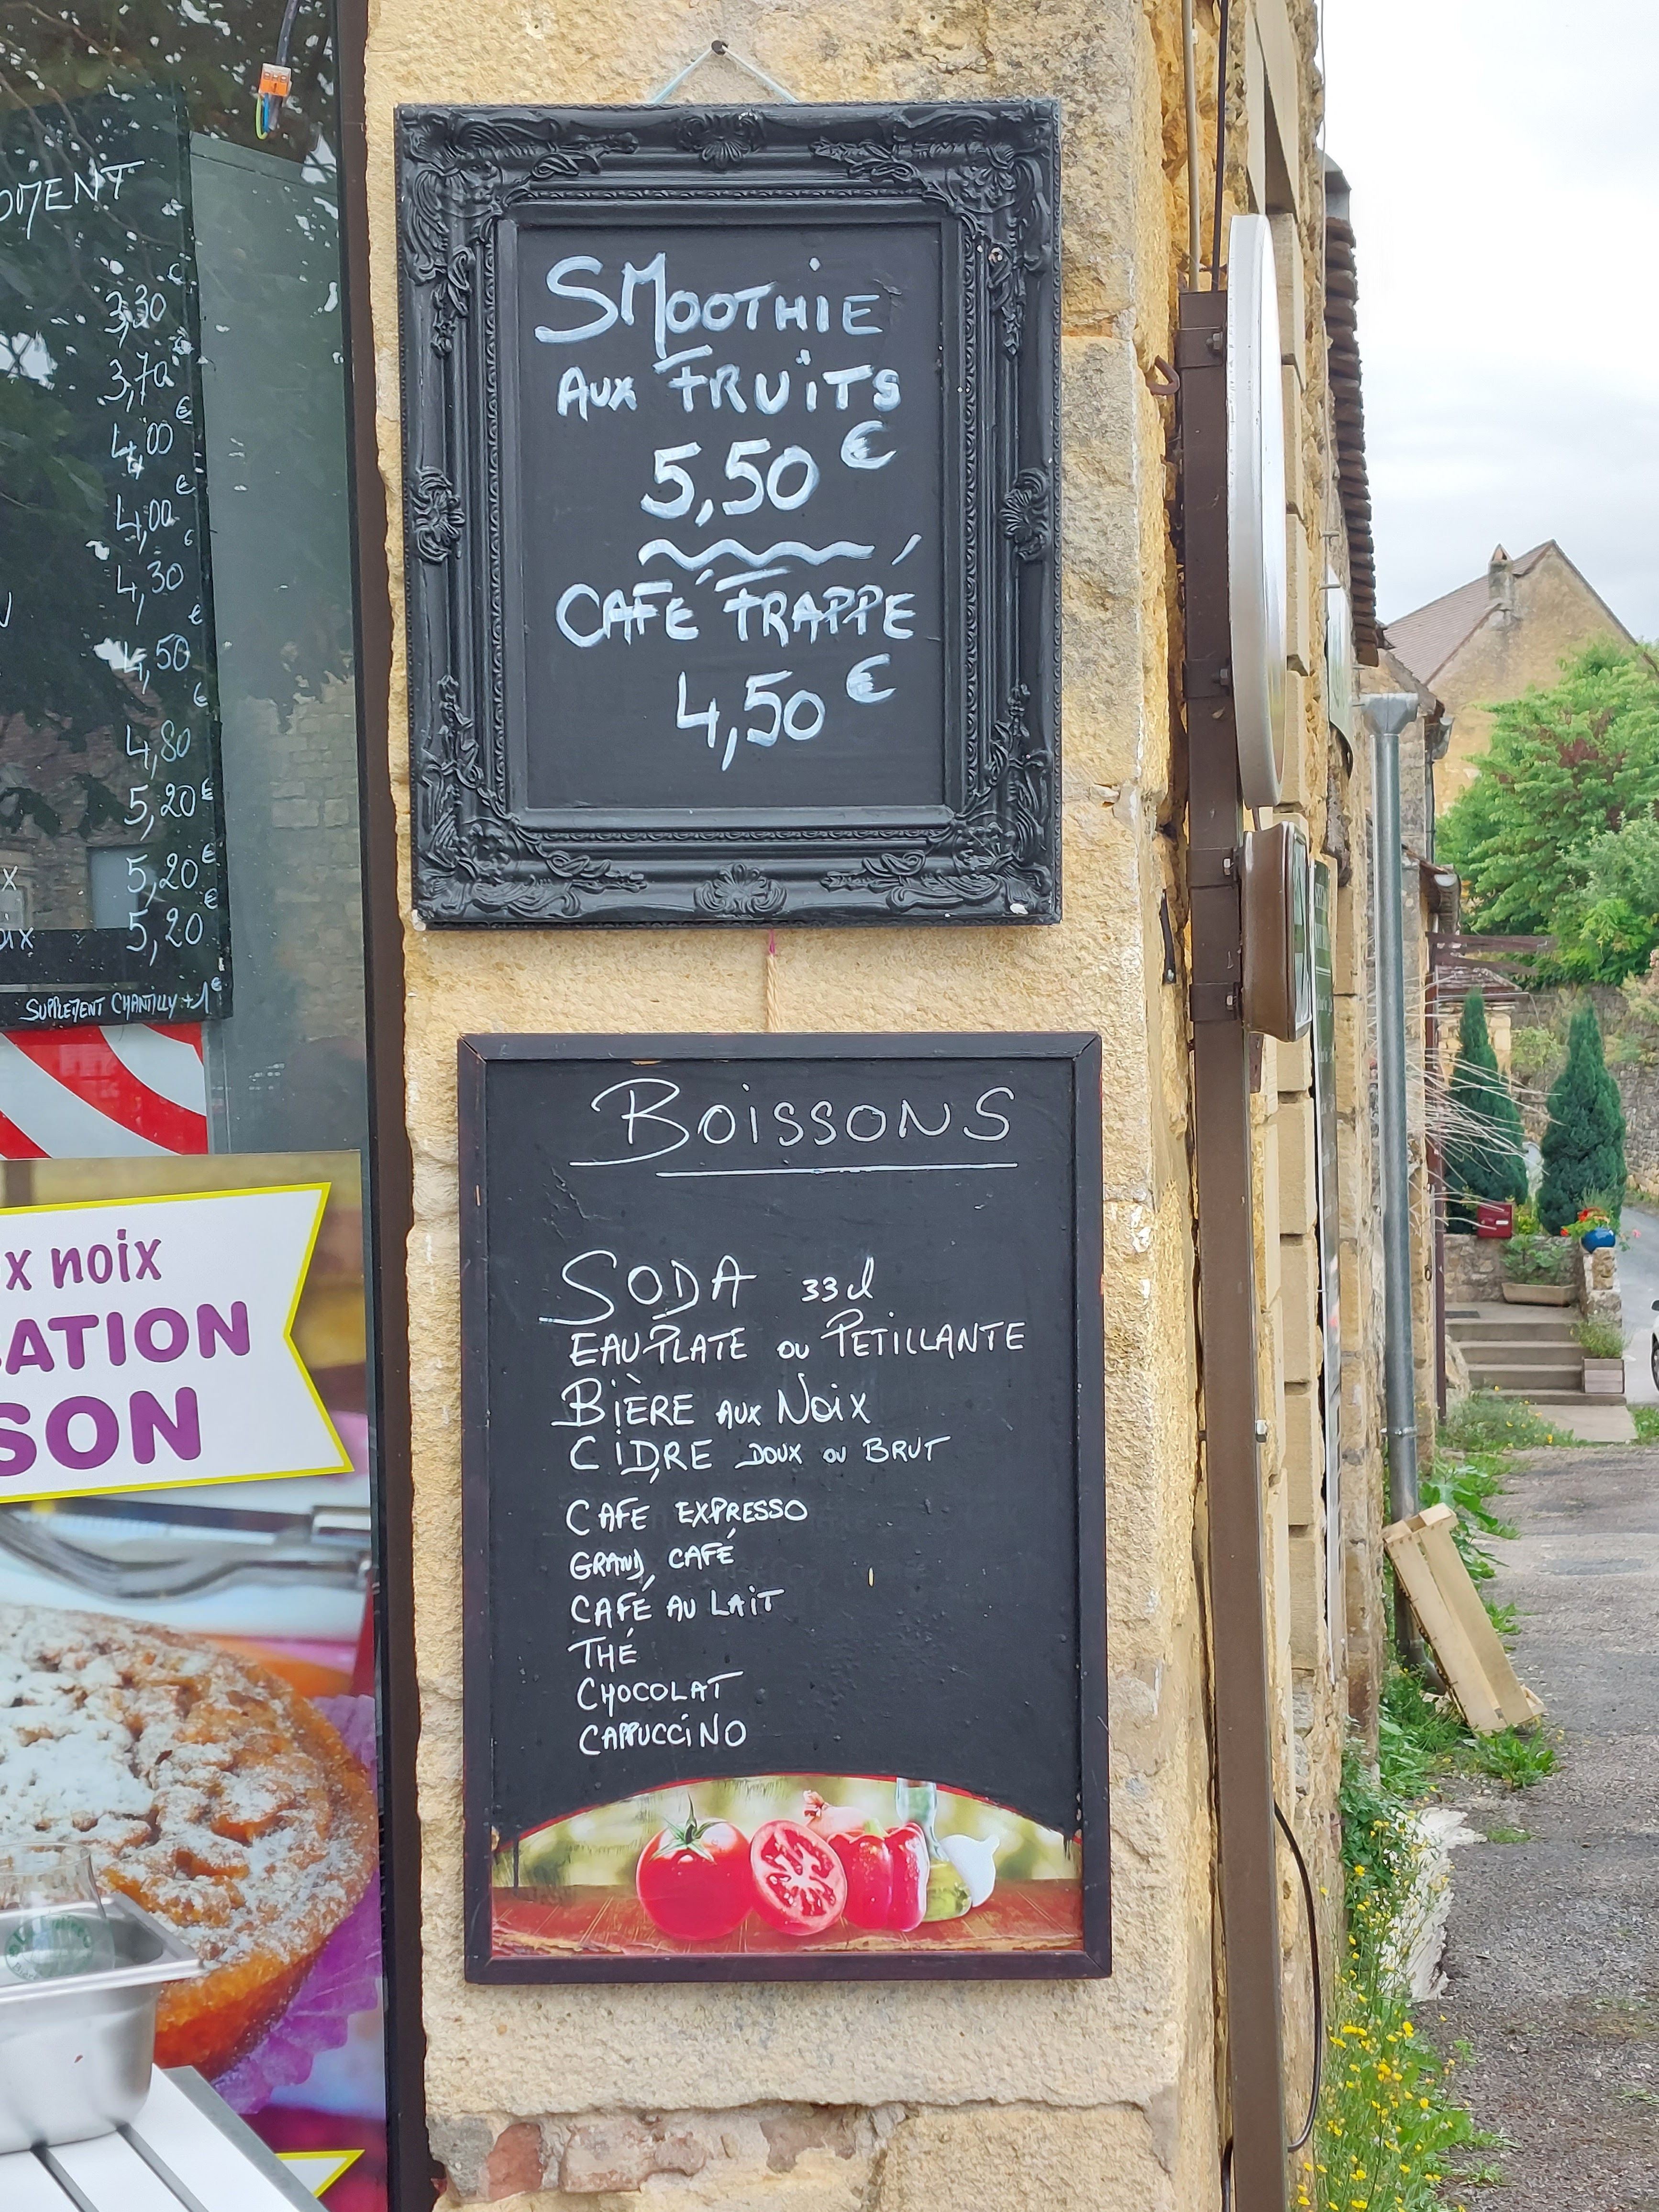 OMENT
3,30 €
3,70 €
4,00 €
4,00 €
4,30 €
4,50 €
4,80 €
5,20 €
x 5,20 €
oix 5,20 €
SUPPLEMENT CHANTILLY +1€
x noix
ATION
SON
SMOOTHIE
AUX FRUITS
5,50 €
CAFÉ FRAPPÉ
4,50 €
BOISSONS
SODA 33cl
EAU PLATE OU PETILLANTE
BIÈRE AUX NOIX
CIDRE DOUX OU BRUT
CAFE EXPRESSO
GRAND CAFÉ
CAFÉ AU LAIT
THÉ
CHOCOLAT
CAPPUCCINO